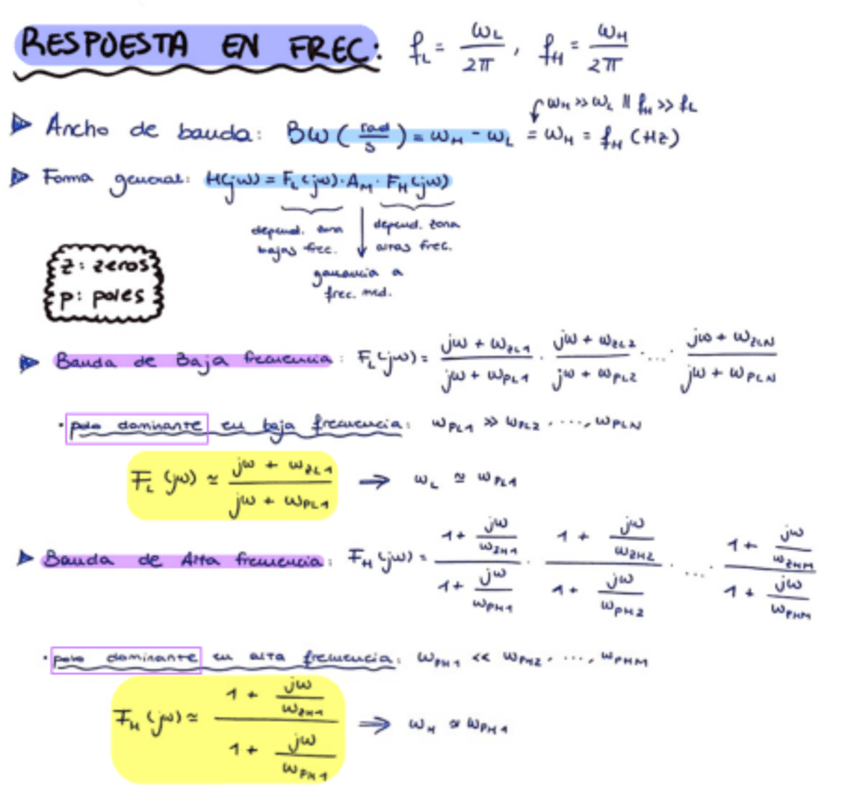 RESPUESTA EN FREC: f_L = ω_L / 2π , f_H = ω_H / 2π
ω_H >> ω_L || f_H >> f_L
▶ Ancho de banda: BW (rad/s) = ω_H - ω_L = ω_H = f_H (Hz)
▶ Forma general: H(jω) = F_L(jω) · A_M · F_H(jω)
depend. zona bajas frec.
depend. zona altas frec.
ganancia a frec. med.
z: zeros
p: poles
▶ Banda de Baja frecuencia: F_L(jω) = (jω + ω_ZL1)/(jω + ω_PL1) · (jω + ω_ZL2)/(jω + ω_PL2) · ... · (jω + ω_ZLN)/(jω + ω_PLN)
· polo dominante en baja frecuencia: ω_PL1 >> ω_PL2, ..., ω_PLN
F_L(jω) ≃ (jω + ω_ZL1)/(jω + ω_PL1) → ω_L ≃ ω_PL1
▶ Banda de Alta frecuencia: F_H(jω) = (1 + jω/ω_ZH1)/(1 + jω/ω_PH1) · (1 + jω/ω_ZH2)/(1 + jω/ω_PH2) · ... · (1 + jω/ω_ZHM)/(1 + jω/ω_PHM)
· polo dominante en alta frecuencia: ω_PH1 << ω_PH2, ..., ω_PHM
F_H(jω) ≃ (1 + jω/ω_ZH1)/(1 + jω/ω_PH1) → ω_H ≃ ω_PH1